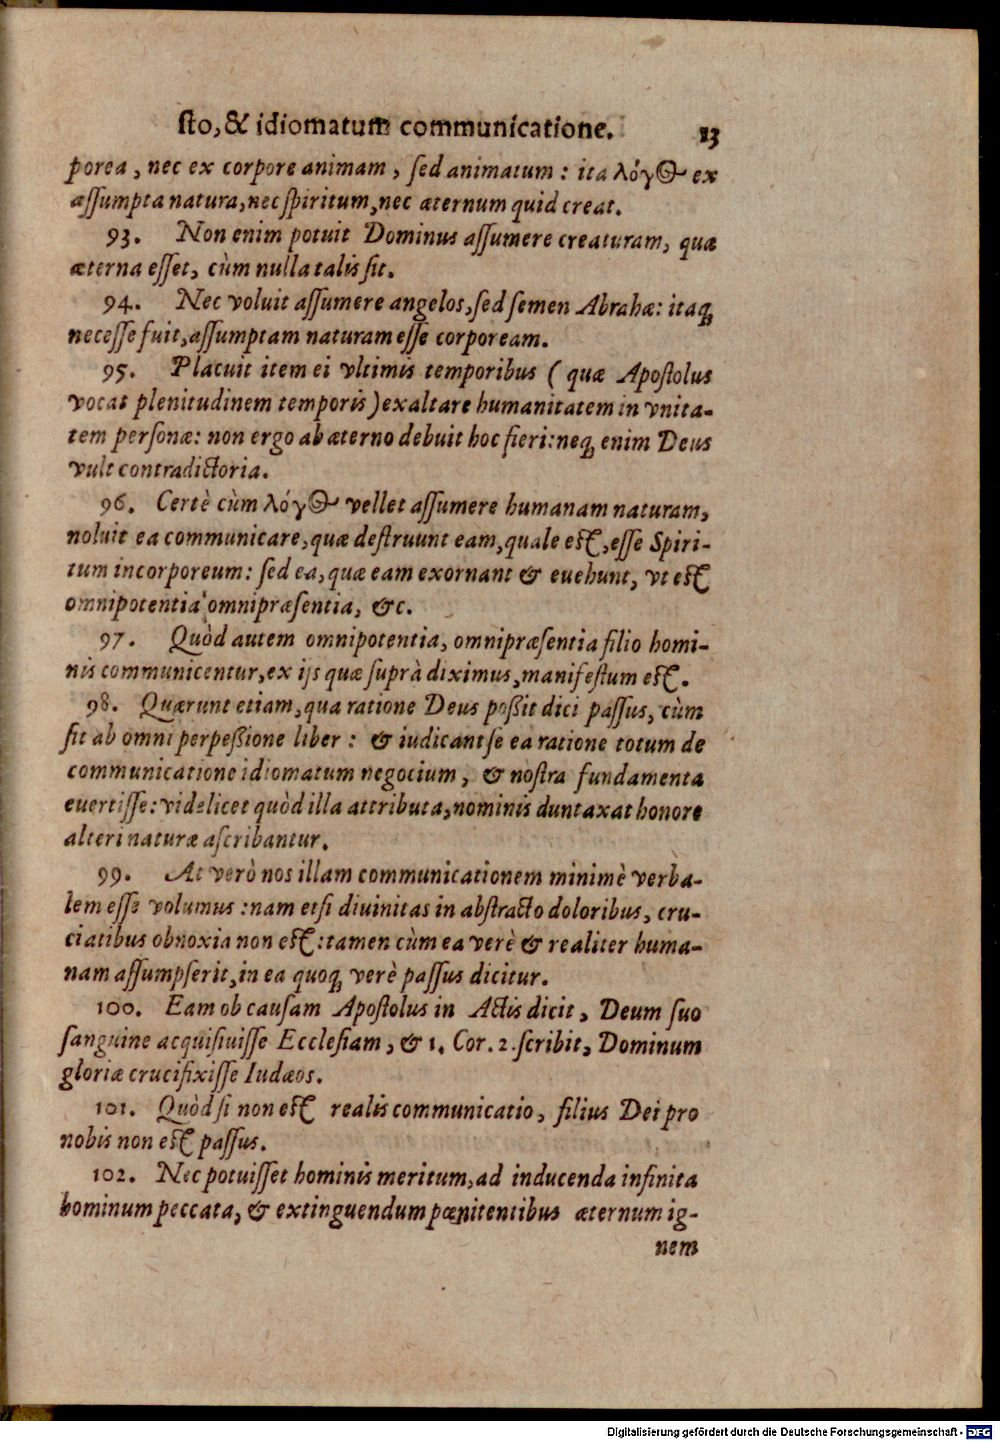 sto, & idiomatum communicatione. 13
porea, nec ex corpore animam, sed animatum: ita λόγος ex
assumpta natura, nec spiritum, nec æternum quid creat.
93. Non enim potuit Dominus assumere creaturam, quæ
æterna esset, cùm nulla talis sit.
94. Nec voluit assumere angelos, sed semen Abrahæ: itaq;
necesse fuit, assumptam naturam esse corpoream.
95. Placuit item ei vltimis temporibus ( quæ Apostolus
vocat plenitudinem temporis ) exaltare humanitatem in vnita-
tem personæ: non ergo ab æterno debuit hoc fieri: neq; enim Deus
vult contradictoria.
96. Certè cùm λόγος vellet assumere humanam naturam,
noluit ea communicare, quæ destruunt eam, quale est, esse Spiri-
tum incorporeum: sed ea, quæ eam exornant & euehunt, vt est
omnipotentia, omnipræsentia, &c.
97. Quòd autem omnipotentia, omnipræsentia filio homi-
nis communicentur, ex ijs quæ suprà diximus, manifestum est.
98. Quærunt etiam, qua ratione Deus poßit dici passus, cùm
sit ab omni perpeßione liber: & iudicant se ea ratione totum de
communicatione idiomatum negocium, & nostra fundamenta
euertisse: videlicet quòd illa attributa, nominis duntaxat honore
alteri naturæ ascribantur.
99. At verò nos illam communicationem minimè verba-
lem esse volumus: nam etsi diuinitas in abstracto doloribus, cru-
ciatibus obnoxia non est: tamen cùm ea verè & realiter huma-
nam assumpserit, in ea quoq; verè passus dicitur.
100. Eam ob causam Apostolus in Actis dicit, Deum suo
sanguine acquisiuisse Ecclesiam, & 1. Cor. 2. scribit, Dominum
gloriæ crucifixisse Iudæos.
101. Quòd si non est realis communicatio, filius Dei pro
nobis non est passus.
102. Nec potuisset hominis meritum, ad inducenda infinita
hominum peccata, & extinguendum pœnitentibus æternum ig-
nem
Digitalisierung gefördert durch die Deutsche Forschungsgemeinschaft - DFG